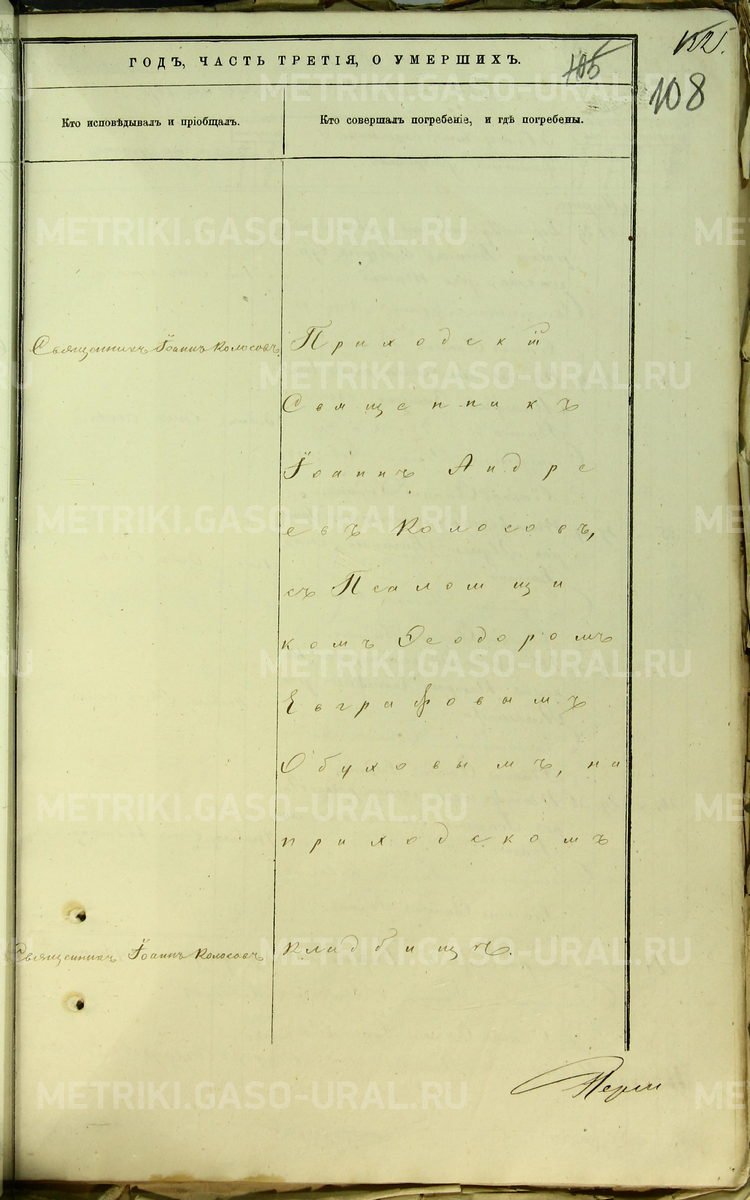 ГОДЪ, ЧАСТЬ ТРЕТІЯ, О УМЕРШИХЪ.
105
108
Кто исповѣдывалъ и пріобщалъ.
Кто совершалъ погребеніе, и гдѣ погребены.
Священникъ Іоаннъ Колосовъ
Приходскій
Священникъ
Іоаннъ Андре
евъ Колосовъ,
съ Псаломщи
комъ Ѳеодоромъ
Евграфовымъ
Обуховымъ, на
приходскомъ
Священникъ Іоаннъ Колосовъ
кладбищѣ.
METRIKI.GASO-URAL.RU